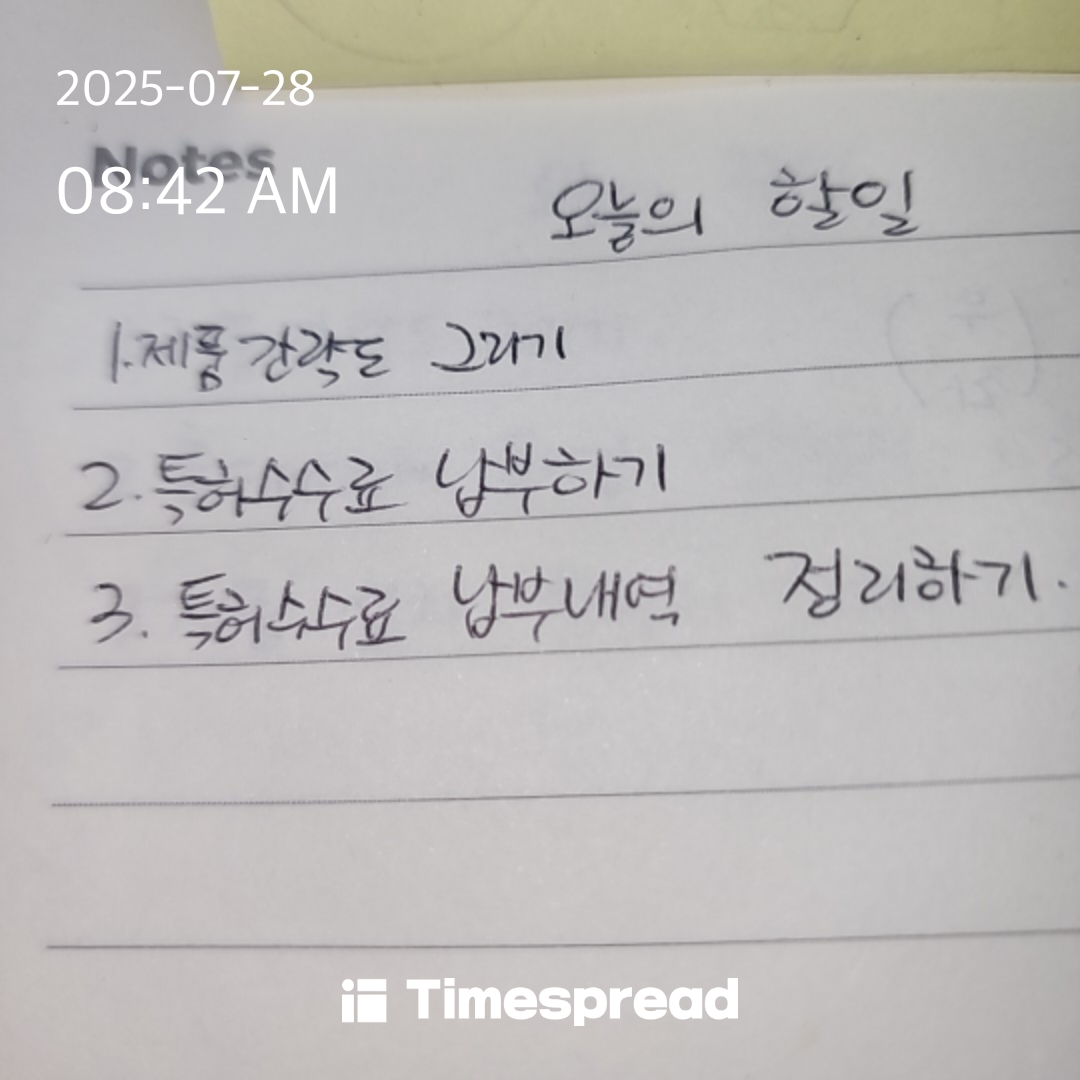 2025-07-28
Notes
08:42 AM
오늘의 할일
1. 제품간략도 그리기
2. 특허수수료 납부하기
3. 특허수수료 납부내역 정리하기.
Timespread